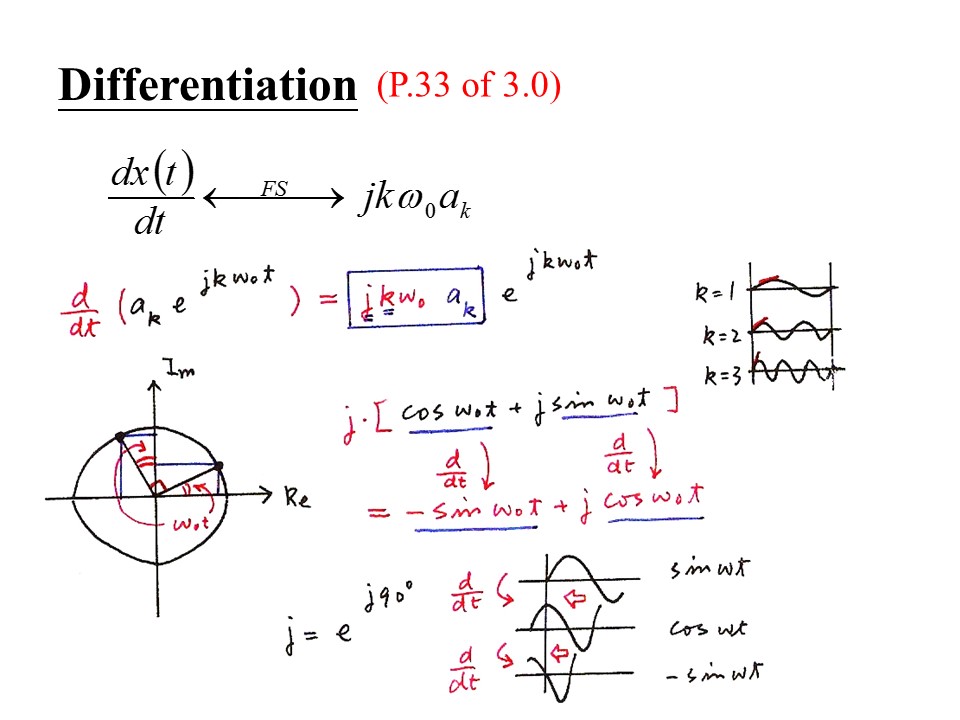 Differentiation (P.33 of 3.0)
dx(t)/dt ←FS→ jkω₀aₖ
d/dt (aₖ e^{jkω₀t}) = jkω₀ aₖ e^{jkω₀t}
k=1
k=2
k=3
Im
Re
ω₀t
j·[cos ω₀t + j sin ω₀t]
d/dt d/dt
= - sin ω₀t + j cos ω₀t
j = e^{j90°}
d/dt
sin ωt
cos ωt
d/dt
- sin ωt